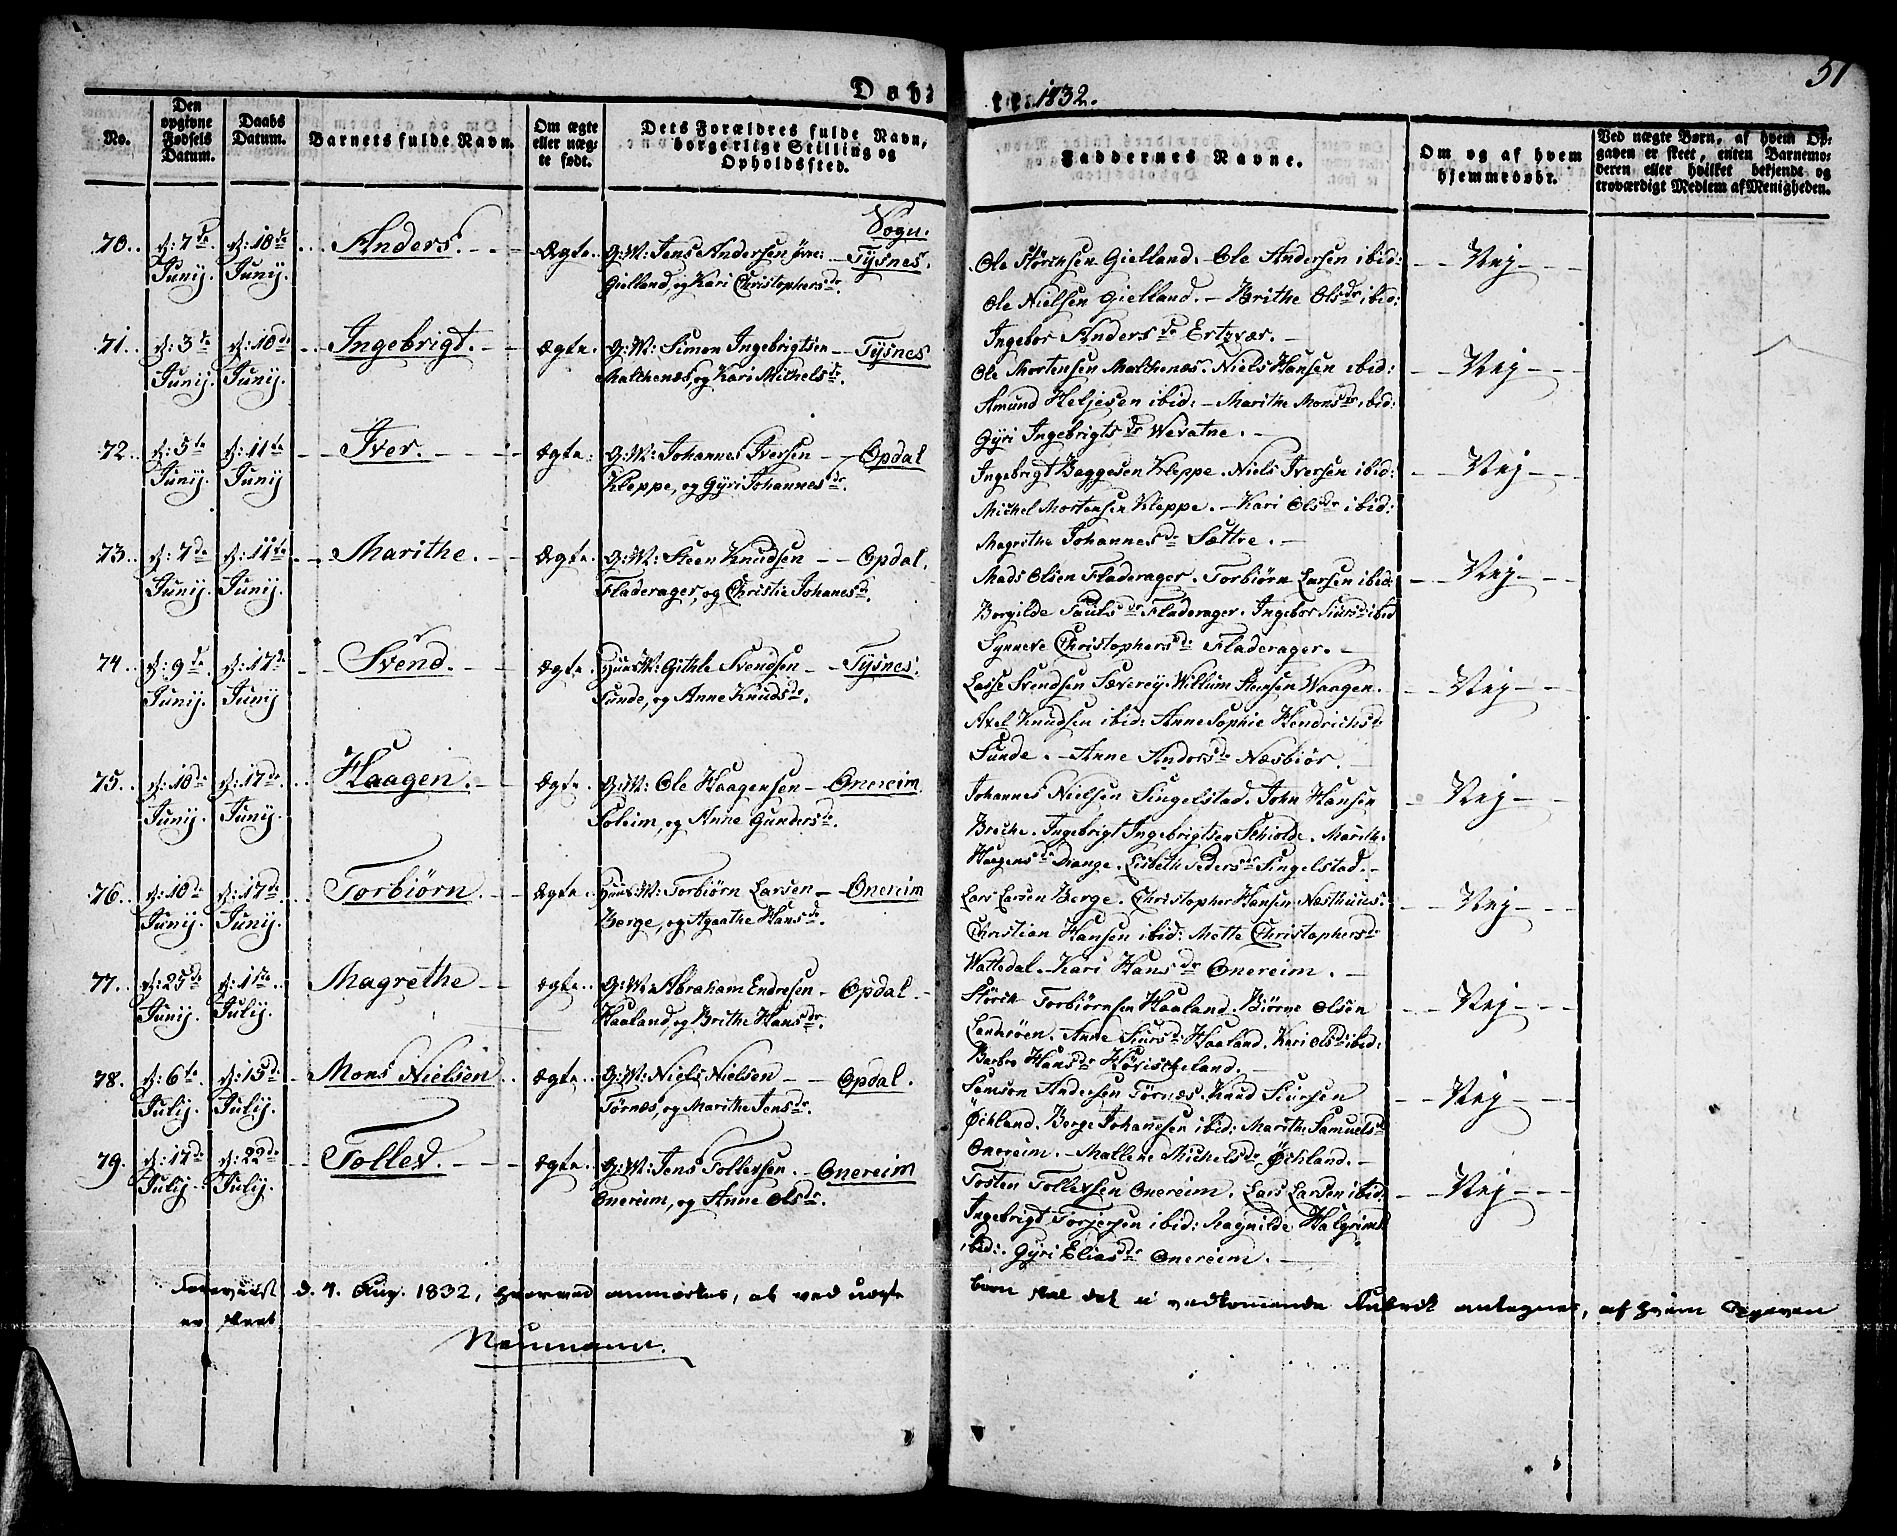 51
Døbte. 1832.
No. | Den opgivne Fødsels Datum. | Daabs Datum. | Barnets fulde Navn. | Om ægte eller uægte født. | Dets Forældres fulde Navn, borgerlige Stilling og Opholdssted. | Faddernes Navne. | Om og af hvem hjemmedøbt. | Ved uægte Børn, af hvem Opgaven er skeet, enten Barnemoderen eller hvilket bekjendt og troværdigt Medlem af Menigheden.
Sogn.
70. d: 7de Junij. d: 10de Junij. Anders. Ægte. G:M: Jens Andersen øvre: Tysnes.
Gielland, og Kari Christophersdr.
Ole Størchsen Gielland. Ole Andersen ibid:
Ole Nielsen Gielland. Brithe Olsdr ibid:
Ingebor Andersdr Ertzvær.
Nej
71. d: 3de Junij. d: 10de Junij. Ingebrigt. Ægte. G:M: Simon Ingebrigtsen Tysnes
Malchenæs, og Kari Michelsdr.
Ole Mortensen Malchenæs. Niels Hansen ibid:
Amund Heljesen ibid: Marithe Monsdr ibid:
Gÿri Ingebrigtsdr Wevatne.
Nej
72. d: 5te Junij. d: 11te Junij Iver. Ægte. G:M: Johannes Iversen Opdal
Kleppe, og Gÿri Johannesdr.
Ingebrigt Baggesen Kleppe. Niels Iversen ibid:
Michel Mortensen Kleppe. Kari Olsdr ibid:
Magrethe Johannesdr Sættre.
Nej
73. d: 7de Junij. d: 11te Junij. Marithe. Ægte. G:M: Steen Knudsen Opdal.
Fladerager, og Christie Johanesd.
Mads Olsen Fladerager. Torbiørn Larsen ibid:
Borgilde Paulsdr Fladerager. Ingebor Siursd ibid
Synneve Christophersdr Fladerager.
Nej
74. d: 9de Junij. d: 17de Junij Svend. Ægte. Huus M: Githle Svendsen Tysnes.
Sunde, og Anne Knudsdr.
Lasse Svendsen Sæverej. Willum Steensen Waagen.
Axel Knudsen ibid: Anne Sophie Hendrichsd
Sunde. Anne Andersdr Næsbiør.
Nej
75. d: 10de Junij. d: 17de Junij. Haagen. Ægte. G:M: Ole Haagensen Onereim
Soleim, og Anne Gundersdr.
Johannes Nielsen Singelstad. John Hansen
Breche. Ingebrigt Ingebrigtsen Schiolde. Marith.
Haagensdr Drange. Lisbeth Pedersdr Singelstad.
Nej
76. d: 10de Junij. d: 17de Junij. Torbiørn. Ægte. Huus M: Torbiørn Larsen Onereim
Berge, og Agaathe Hansdr.
Lars Larsen Berge. Christopher Hansen Næsthuus.
Christian Hansen ibid: Mette Christophersdr
Wattedal. Kari Hansdr Onereim.
Nej
77. d: 25de Junij. d: 1ste Julij. Magrethe Ægte. G:M: Abraham Endresen Opdal.
Haaland, og Brithe Hansdr.
Størch Torbiørnsen Haaland. Biørne Olsen
Landrøen. Anne Siursd Haaland. Kari Olsdr ibid:
Barbro Hansdr Høvischeland.
Nej
78. d: 6te Julij. d: 15de Julij. Mons Nielsen Ægte. G:M: Niels Nielsen Opdal.
Tørnæs, og Marithe Jensdr.
Samson Andersen Tørnæs. Knud Siursen
Øchland. Berge Johannesen ibid: Marithe Samuelsd
Onereim. Mallene Michelsdr Øchland.
Nej
79. d: 17de Julij. d: 22de Julij. Tollev. Ægte. G:M: Jens Tollevsen. Onereim
Onereim, og Anne Olsdr.
Tosten Tollevsen Onereim. Lars Larsen ibid:
Ingebrigt Torjersen ibid: Ragnilde Halgrimsd
ibid: Gÿri Eliasdr Onereim.
Nej
Foreviist d. 4. Aug. 1832, hvorved anmærkes, at ved uægte børn skal det i vedkommende Rubrik antegnes, af hvem Opgaven
er skeet
Neumann.